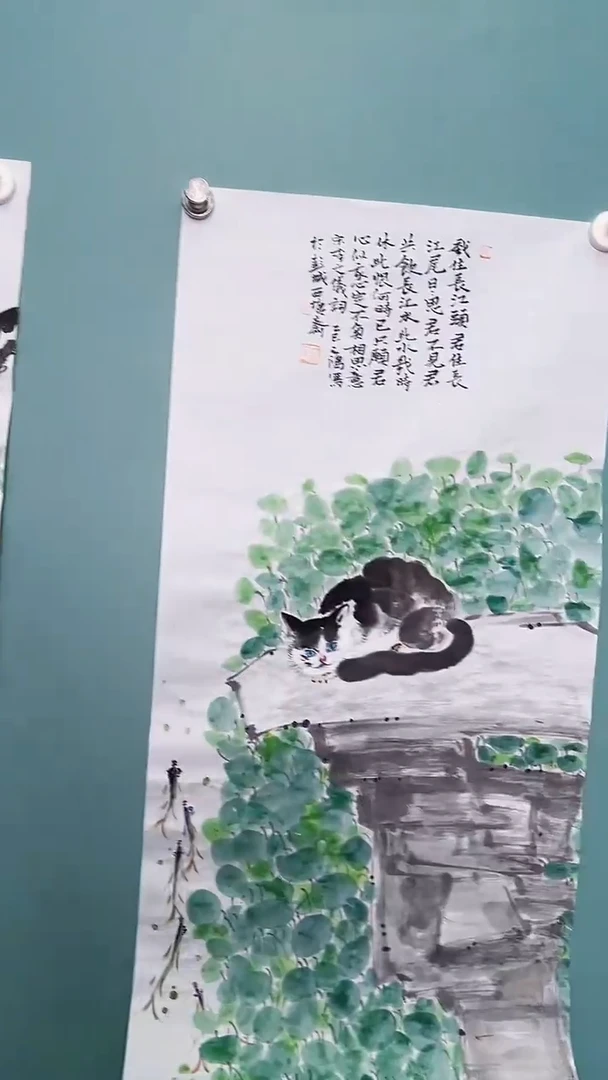 我住長江頭君住長
江尾日日思君不見君
共飲長江水此水幾時
休此恨何時已只願君
心似我心定不負相思意
宋李之儀詞
於彭城